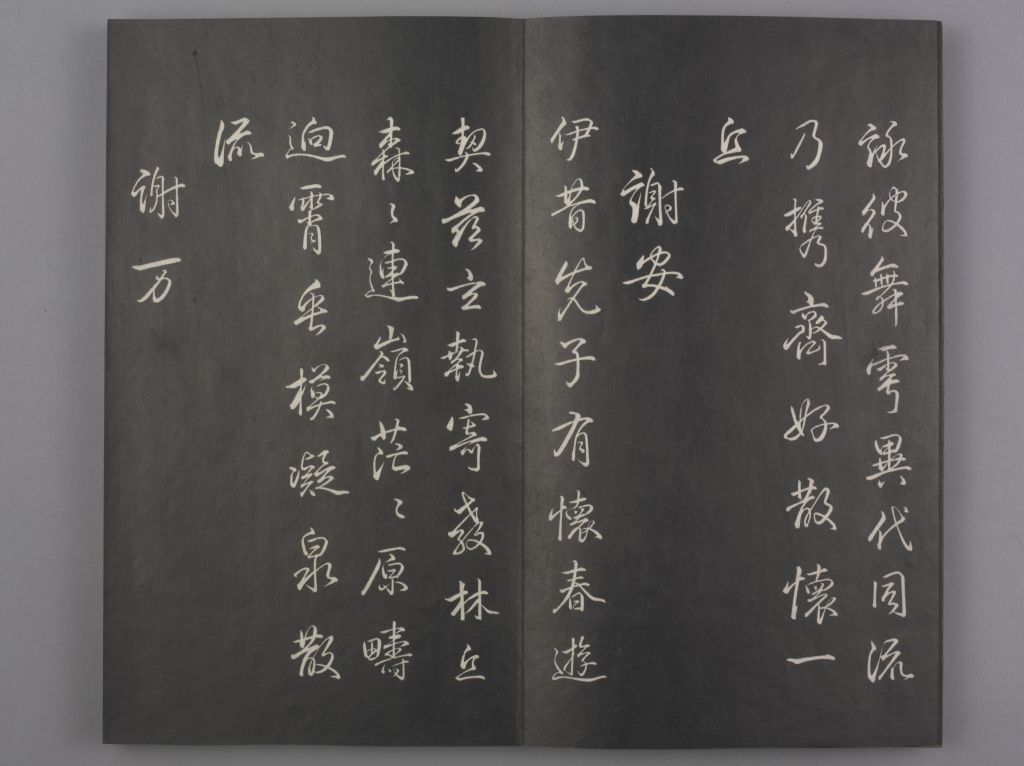 詠彼舞雩異代同流
乃携齊好散懷一
丘
謝安
伊昔先子有懷春遊
契茲言執寄敖林丘
森〻連嶺茫〻原疇
迥霄垂模凝泉散
流
謝万